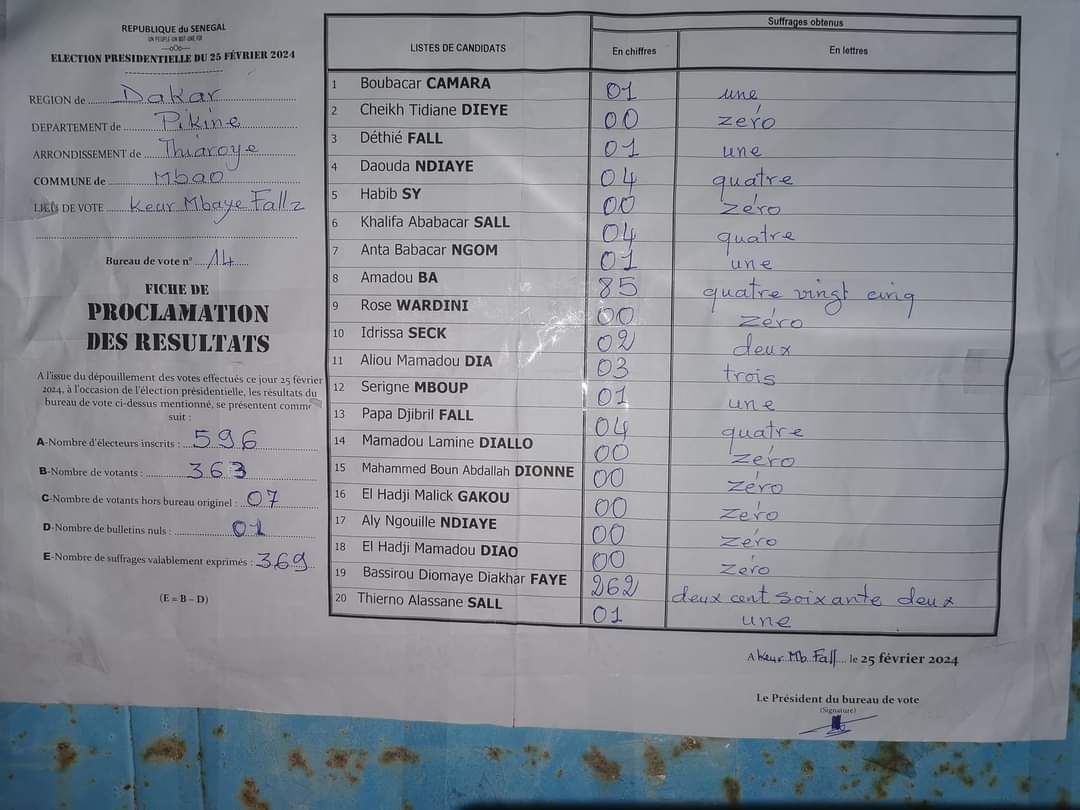 REPUBLIQUE du SENEGAL
UN PEUPLE-UN BUT-UNE FOI
ELECTION PRESIDENTIELLE DU 25 FÉVRIER 2024
REGION de Dakar
DEPARTEMENT de Pikine
ARRONDISSEMENT de Thiaroye
COMMUNE de Mbao
LIEU DE VOTE Keur Mbaye Fall 2
Bureau de vote n° 14
FICHE DE
PROCLAMATION
DES RESULTATS
A l'issue du dépouillement des votes effectués ce jour 25 février
2024, à l'occasion de l'élection présidentielle, les résultats du
bureau de vote ci-dessus mentionné, se présentent comme
suit :
A-Nombre d'électeurs inscrits : 596
B-Nombre de votants : 363
C-Nombre de votants hors bureau originel : 07
D-Nombre de bulletins nuls : 01
E-Nombre de suffrages valablement exprimés : 369
(E = B – D)
LISTES DE CANDIDATS
Suffrages obtenus
En chiffres En lettres
1 Boubacar CAMARA 01 une
2 Cheikh Tidiane DIEYE 00 zéro
3 Déthié FALL 01 une
4 Daouda NDIAYE 04 quatre
5 Habib SY 00 zéro
6 Khalifa Ababacar SALL 04 quatre
7 Anta Babacar NGOM 01 une
8 Amadou BA 85 quatre vingt cinq
9 Rose WARDINI 00 zéro
10 Idrissa SECK 02 deux
11 Aliou Mamadou DIA 03 trois
12 Serigne MBOUP 01 une
13 Papa Djibril FALL 04 quatre
14 Mamadou Lamine DIALLO 00 zéro
15 Mahammed Boun Abdallah DIONNE 00 zéro
16 El Hadji Malick GAKOU 00 zéro
17 Aly Ngouille NDIAYE 00 zéro
18 El Hadji Mamadou DIAO 00 zéro
19 Bassirou Diomaye Diakhar FAYE 262 deux cent soixante deux
20 Thierno Alassane SALL 01 une
A Keur Mb. Fall le 25 février 2024
Le Président du bureau de vote
(Signature)